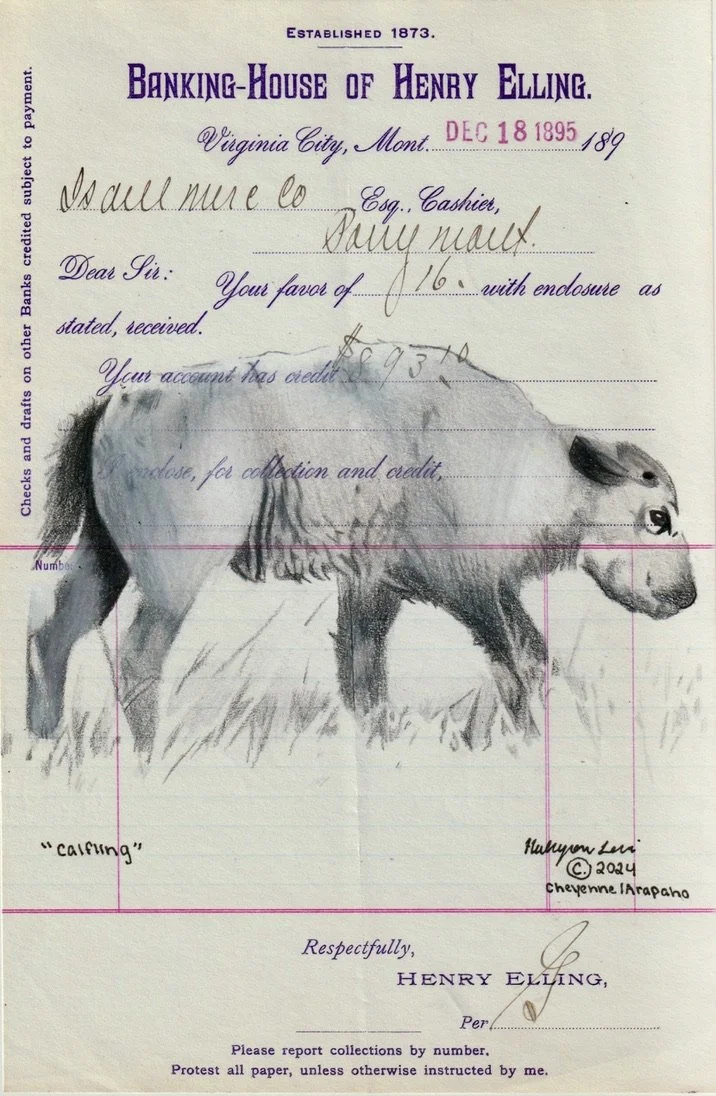 ESTABLISHED 1873.
BANKING-HOUSE OF HENRY ELLING.
Virginia City, Mont. DEC 18 1895 189
Isdell Merc Co Esq., Cashier,
Pony Mont.
Dear Sir: Your favor of 16. with enclosure as
stated, received.
Your account has credit $893.10
I enclose, for collection and credit,
Checks and drafts on other Banks credited subject to payment.
Number
"Calfling"
Levi
© 2024
Cheyenne/Arapaho
Respectfully,
HENRY ELLING,
Per
Please report collections by number.
Protest all paper, unless otherwise instructed by me.